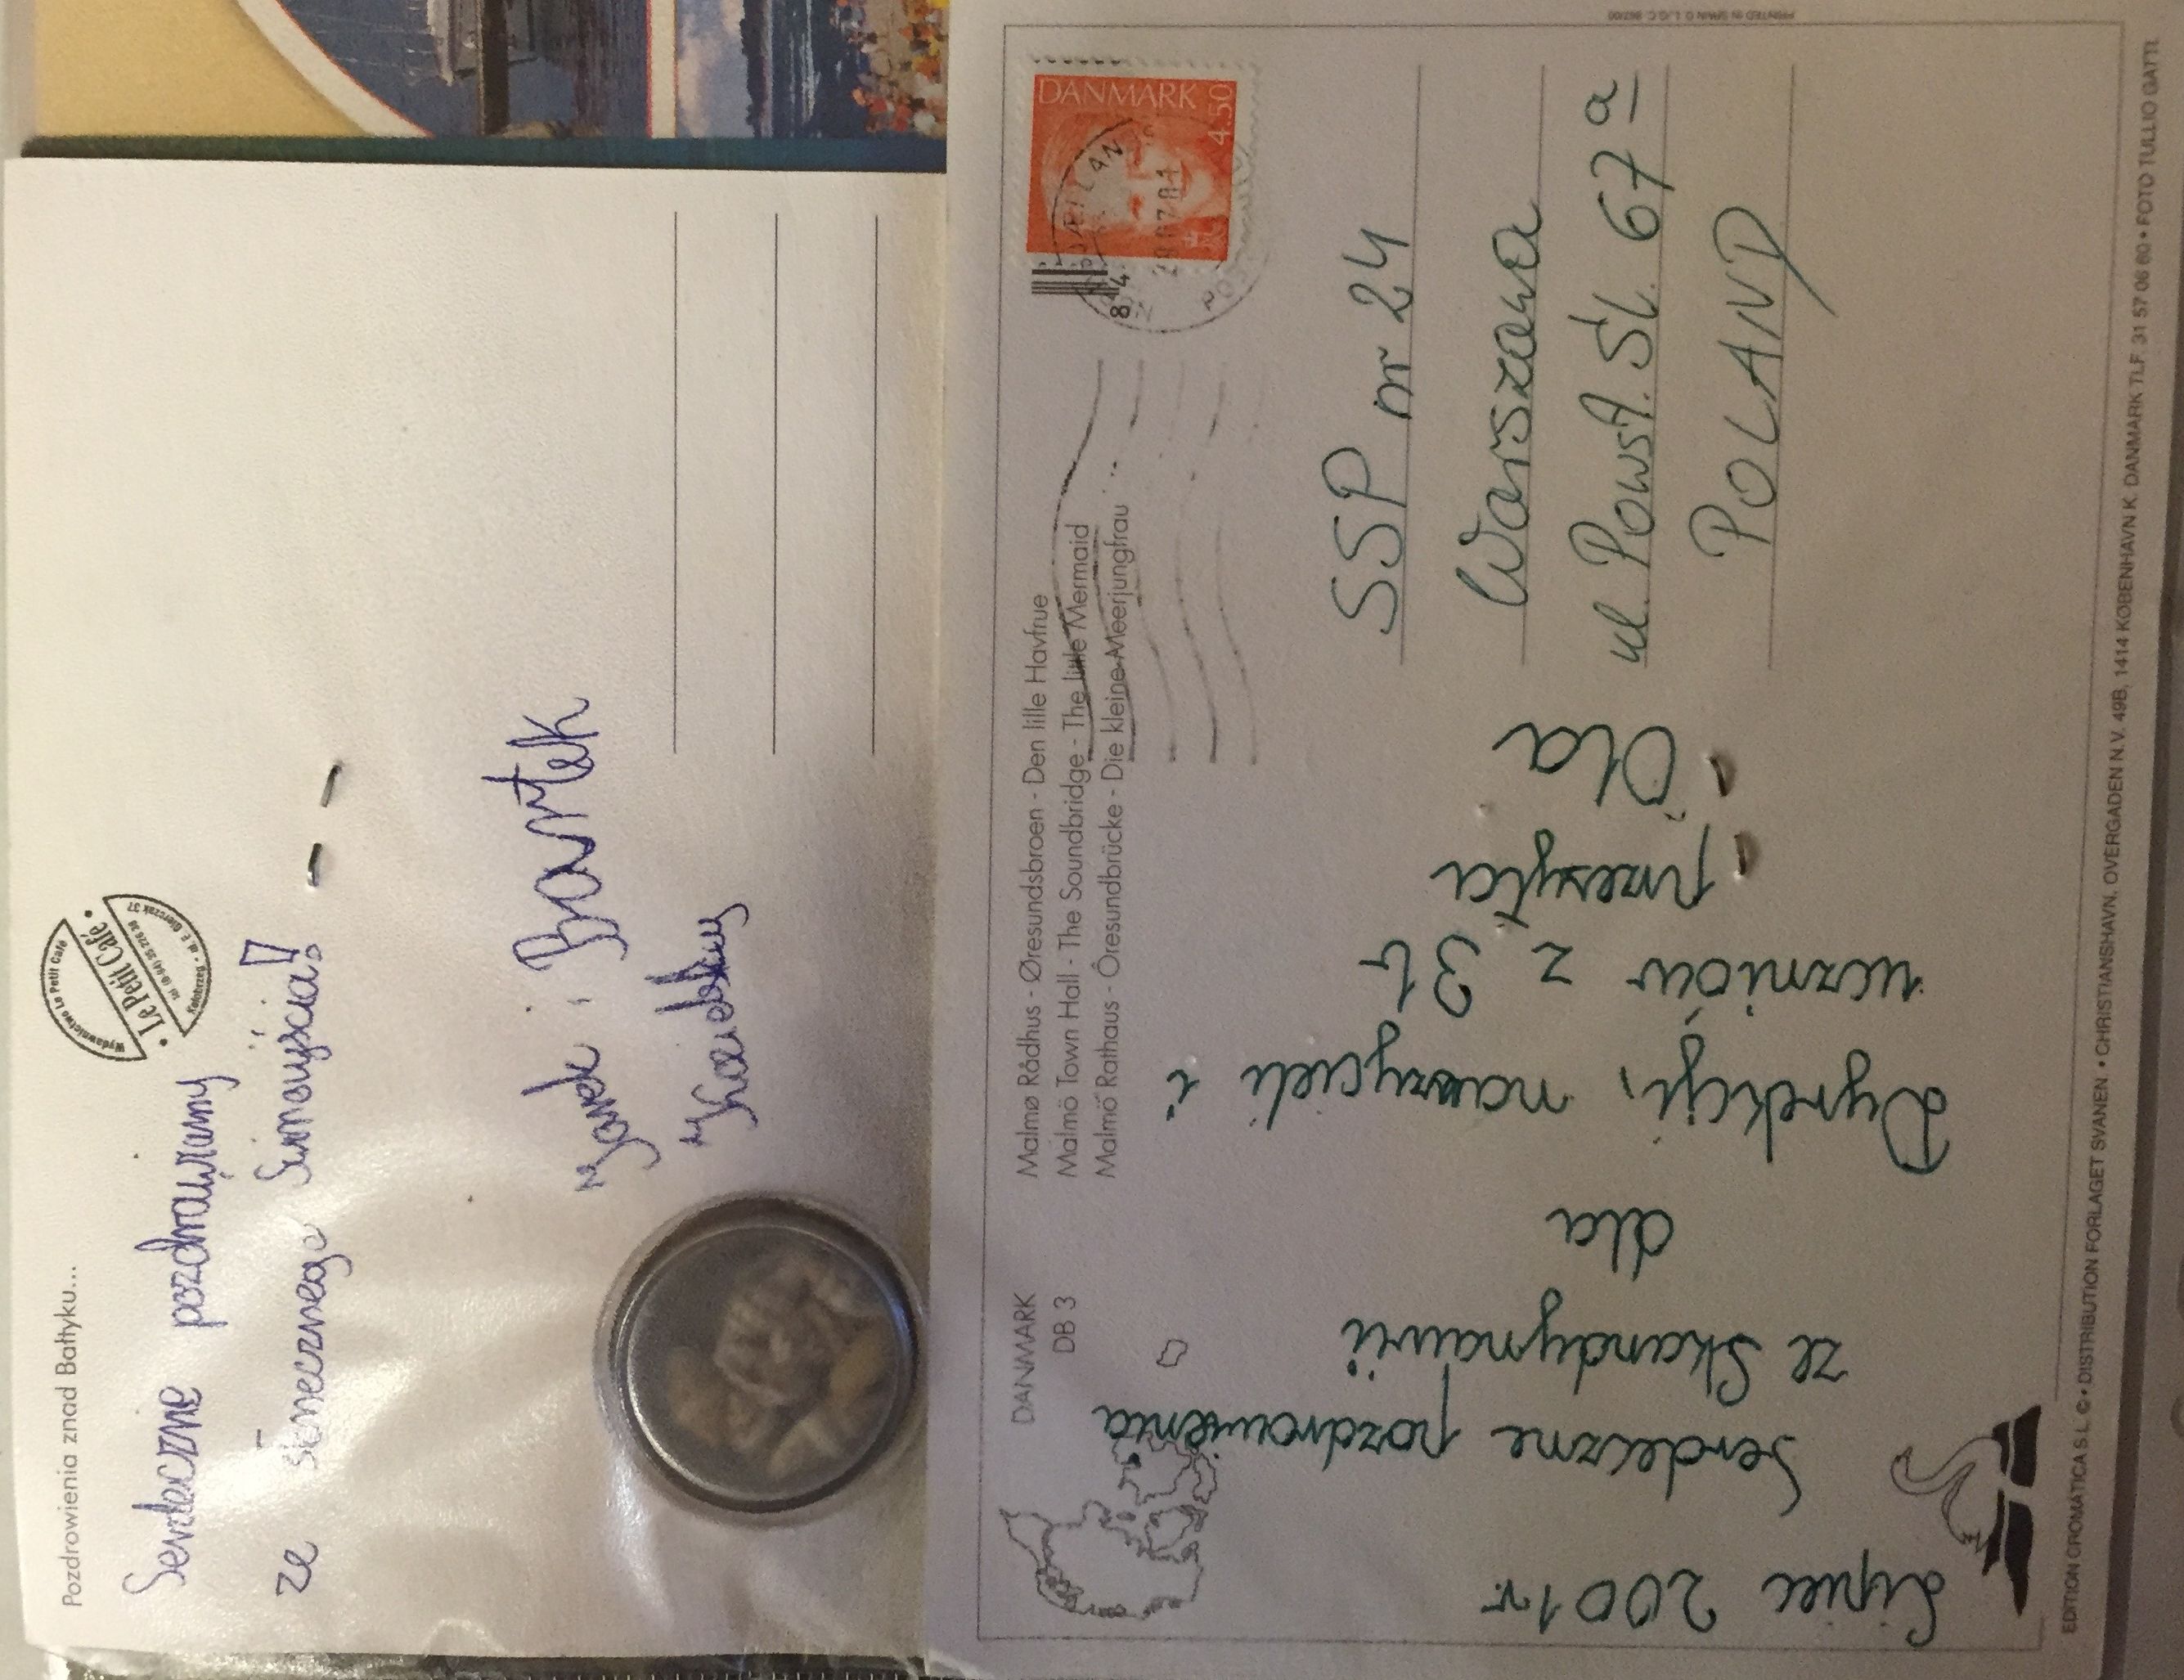 Pozdrowienia znad Bałtyku...
Wydawnictwo Le Petit Café
Le Petit Café
Serdeczne pozdrawiamy
ze słonecznego Świnoujścia!
Janek i Bartek
PRINTED IN SPAIN
DANMARK
DB 3
Malmø Rådhus - Øresundsbroen - Den lille Havfrue
Malmö Town Hall - The Soundbridge - The little Mermaid
Malmö Rathaus - Öresundbrücke - Die kleine Meerjungfrau
DANMARK
4.50
Lipiec 2001 r.
Serdeczne pozdrowienia
ze Skandynawii
dla
Dyrekcji, nauczycieli i
uczniów z 3 b
przesyła
Ola
SSP nr 24
Warszawa
ul. Powst. Śl. 67 a
POLAND
EDITION CROMATICA S.L. © • DISTRIBUTION FORLAGET SVANEN • CHRISTIANSHAVN, OVERGADEN N.V. 49B, 1414 KØBENHAVN K. DANMARK TLF. 31 57 06 60 • FOTO TULLIO GATTI